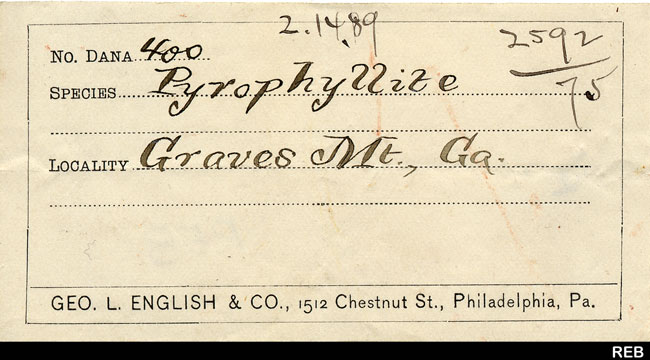 2.14.89
2592
75
No. Dana 400
Species Pyrophyllite
Locality Graves Mt., Ga.
GEO. L. ENGLISH & CO., 1512 Chestnut St., Philadelphia, Pa.
REB